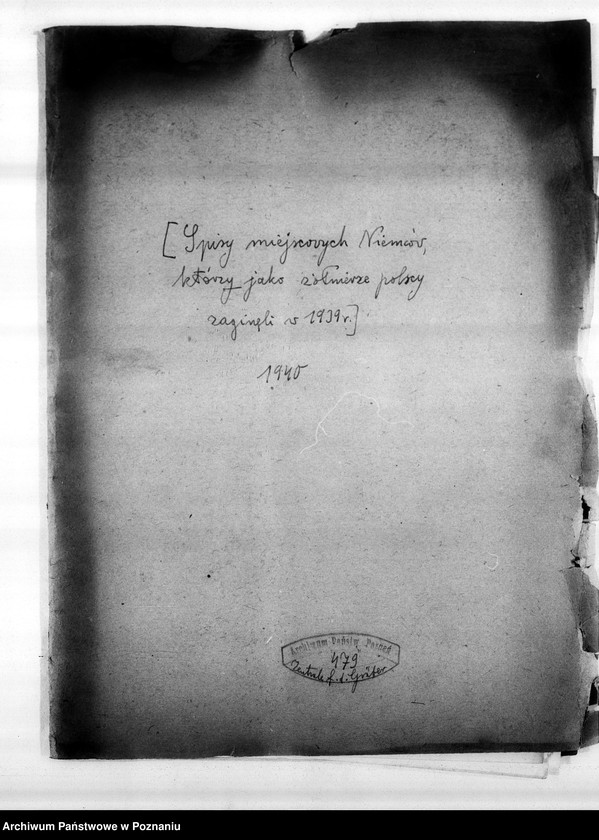 [Spisy miejscowych Niemców,
którzy jako żołnierze polscy
zaginęli w 1939 r.]
1940
Archiwum Państw. Poznań
479
Zentrale f. d. Gräber
Archiwum Państwowe w Poznaniu